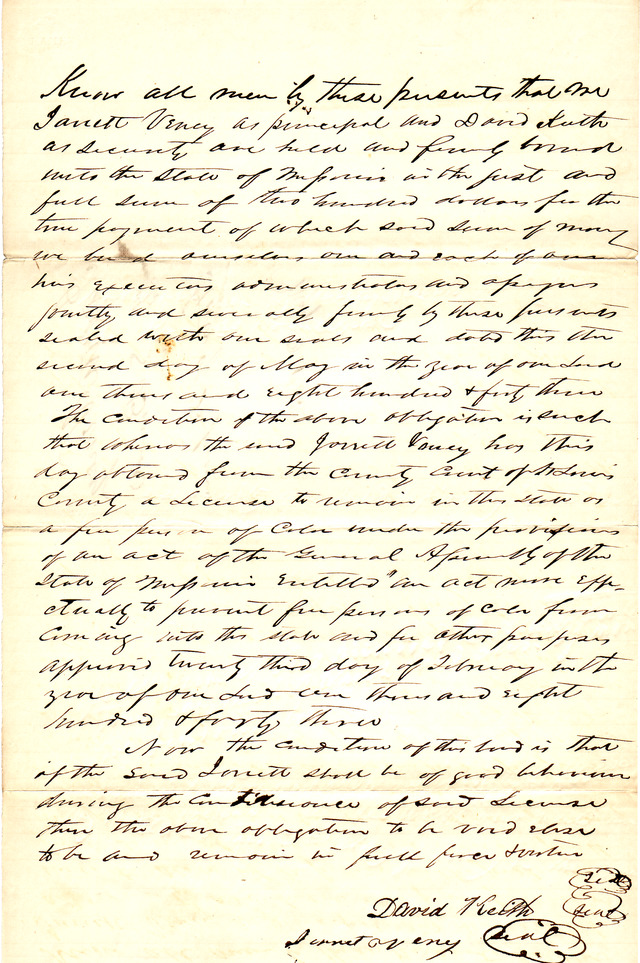 Know all men by these presents that we
Jarrett Veney as principal and David Keith
as security are held and firmly bound
unto the State of Missouri in the just and
full sum of two hundred dollars for the
true payment of which said sum of money
we bind ourselves our and each of our
his Executors administrators and assigns
jointly and severally firmly by these presents
sealed with our seals and dated this the
second day of May in the year of our Lord
one thousand eight hundred & forty three
The condition of the above obligation is such
that whereas the said Jarrett Veney has this
day obtained from the County Court of St Louis
County a License to remain in this State as
a free person of Color under the provisions
of an act of the General Assembly of the
State of Missouri Entitled "an act more Effe-
ctually to prevent free persons of Color from
Coming into this state and for other purposes
approved twenty third day of February in the
year of our Lord one thousand eight
hundred & forty three
Now the condition of this bond is that
if the said Jarrett shall be of good behaviour
during the Continuance of said License
then the above obligation to be void else
to be and remain in full force & virtue
Seal
David Keith Seal
Jarrett Veney Seal